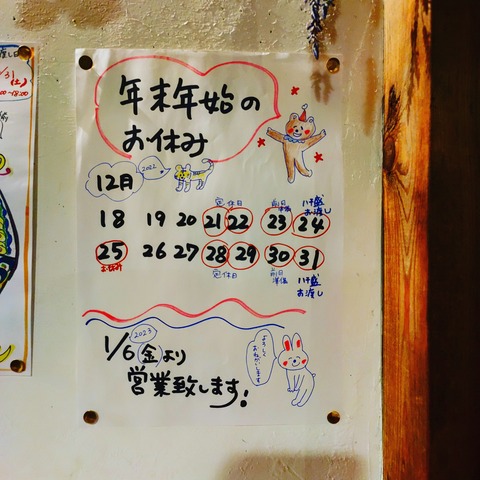 年末年始の
お休み
2022
12月
定休日
前日準備
ハチ盛
お渡し
18 19 20 21 22 23 24
25 26 27 28 29 30 31
お休み
定休日
前日
準備
ハチ盛
お渡し
2023
1/6(金)より
営業致します!
よろしく
おねがいします
31
(土)
18:00